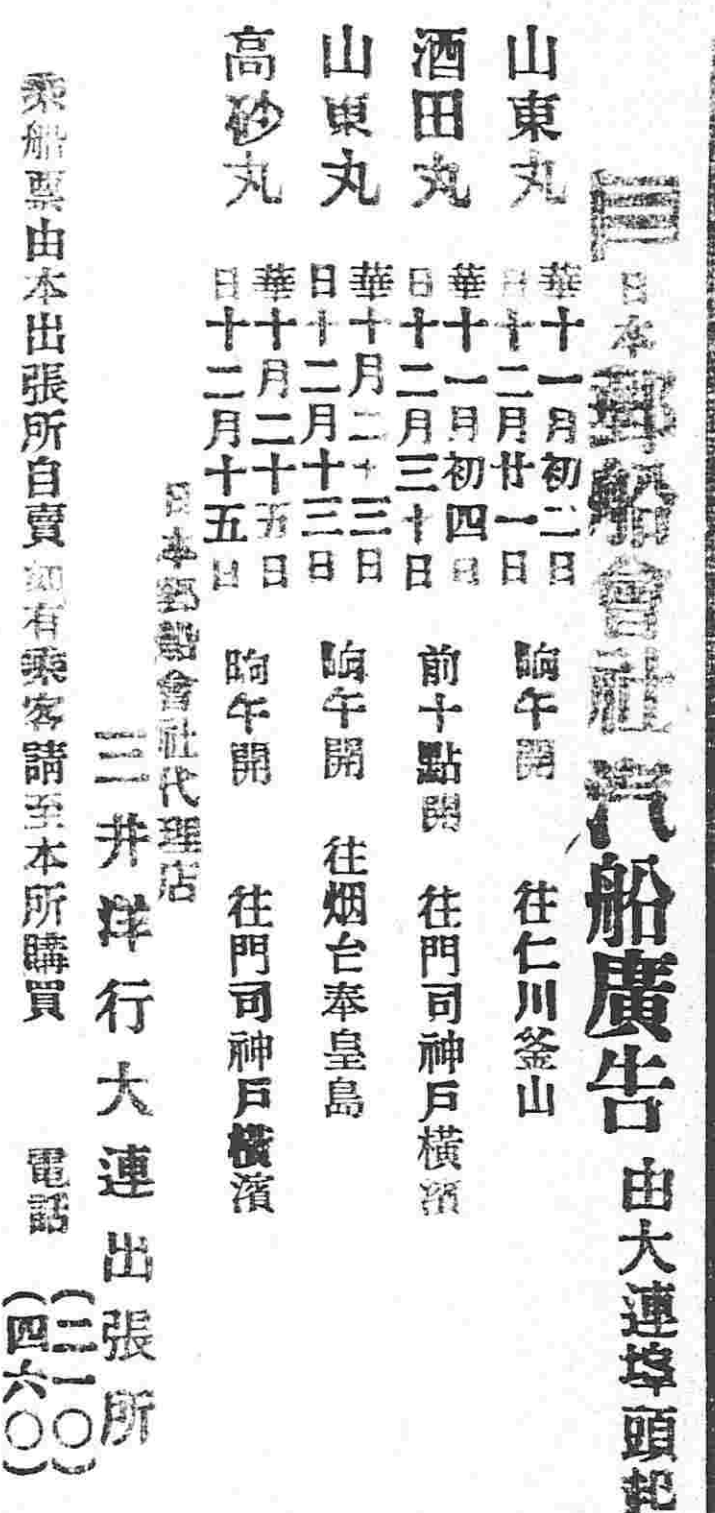 日本郵船會社汽船廣告 由大連埠頭起
山東丸 華十一月初二日 日十二月廿一日 晌午開 往仁川釜山
酒田丸 華十一月初四日 日十二月三十日 前十點開 往門司神戸橫濱
山東丸 華十月二十三日 日十二月十三日 晌午開 往烟台奉皇島
高砂丸 華十月二十五日 日十二月十五日 晌午開 往門司神戸橫濱
日本郵船會社代理店
三井洋行大連出張所
乘船票由本出張所自賣如有乘客請至本所購買 電話 (二一〇) (四六〇)